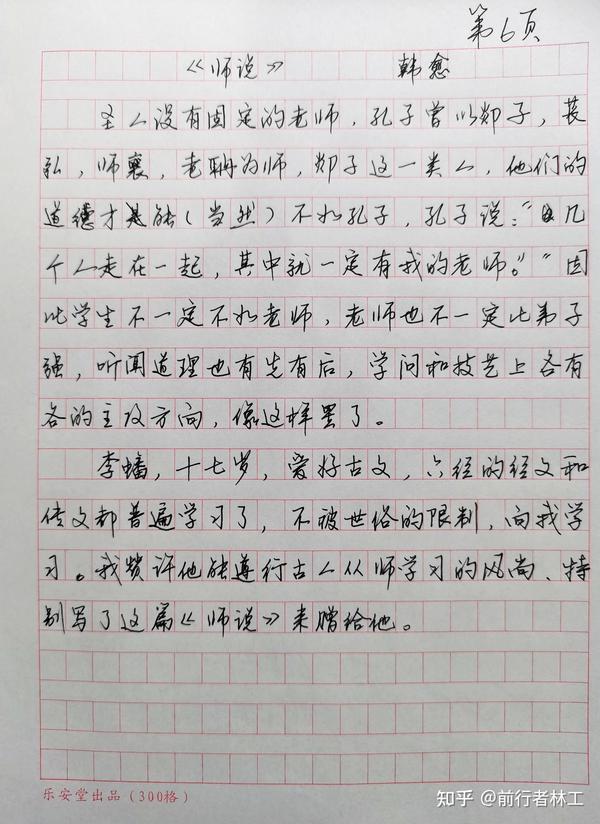 第6页
《师说》 韩愈
圣人没有固定的老师，孔子曾以郯子，苌
弘，师襄，老聃为师，郯子这一类人，他们的
道德才能（当然）不如孔子，孔子说："几
个人走在一起，其中就一定有我的老师。"因
此学生不一定不如老师，老师也不一定比弟子
强，听闻道理也有先有后，学问和技艺上各有
各的主攻方向，像这样罢了。
李蟠，十七岁，爱好古文，六经的经文和
传文都普遍学习了，不被世俗的限制，向我学
习。我赞许他能遵行古人从师学习的风尚、特
别写了这篇《师说》来赠给他。
乐安堂出品（300格）
知乎 @前行者林工